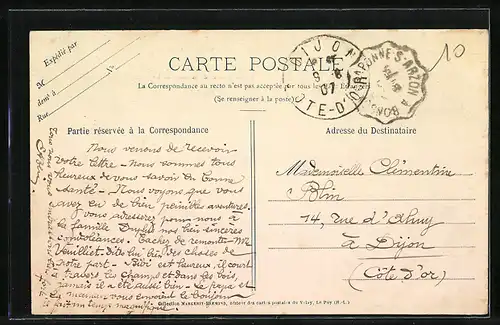 Expédié par
M
dem t à
Rue
CARTE POSTALE
La Correspondance au recto n'est pas acceptée par tous les
(Se renseigner à la poste)
Partie réservée à la Correspondance
Adresse du Destinataire
DIJON
COTE-D'OR
CRAPONNE-S-ARZON
10
Nous venons de recevoir
votre lettre. Nous sommes tous
heureux de vous savoir en bonne
santé. Nous voyons que vous
avez eu de bien pénibles aventures.
Vous adresserez pour nous à
la famille nos bien sincères
condoléances. Tachez de remonter Mr
Veuillet. Dites lui bien des choses de
notre part. est heureux, il court
à travers les champs et dans les bois,
jamais il a été aussi bien. Le papa et
la maman vous envoient le bonjour
temps magnifique
Mademoiselle Clémentine
Blin
14, rue d'Ahuy
à Dijon
(Côte d'or)
Collection MARGERIT-BRÉMOND, éditeur des cartes postales du Velay, Le Puy (H.-L.)